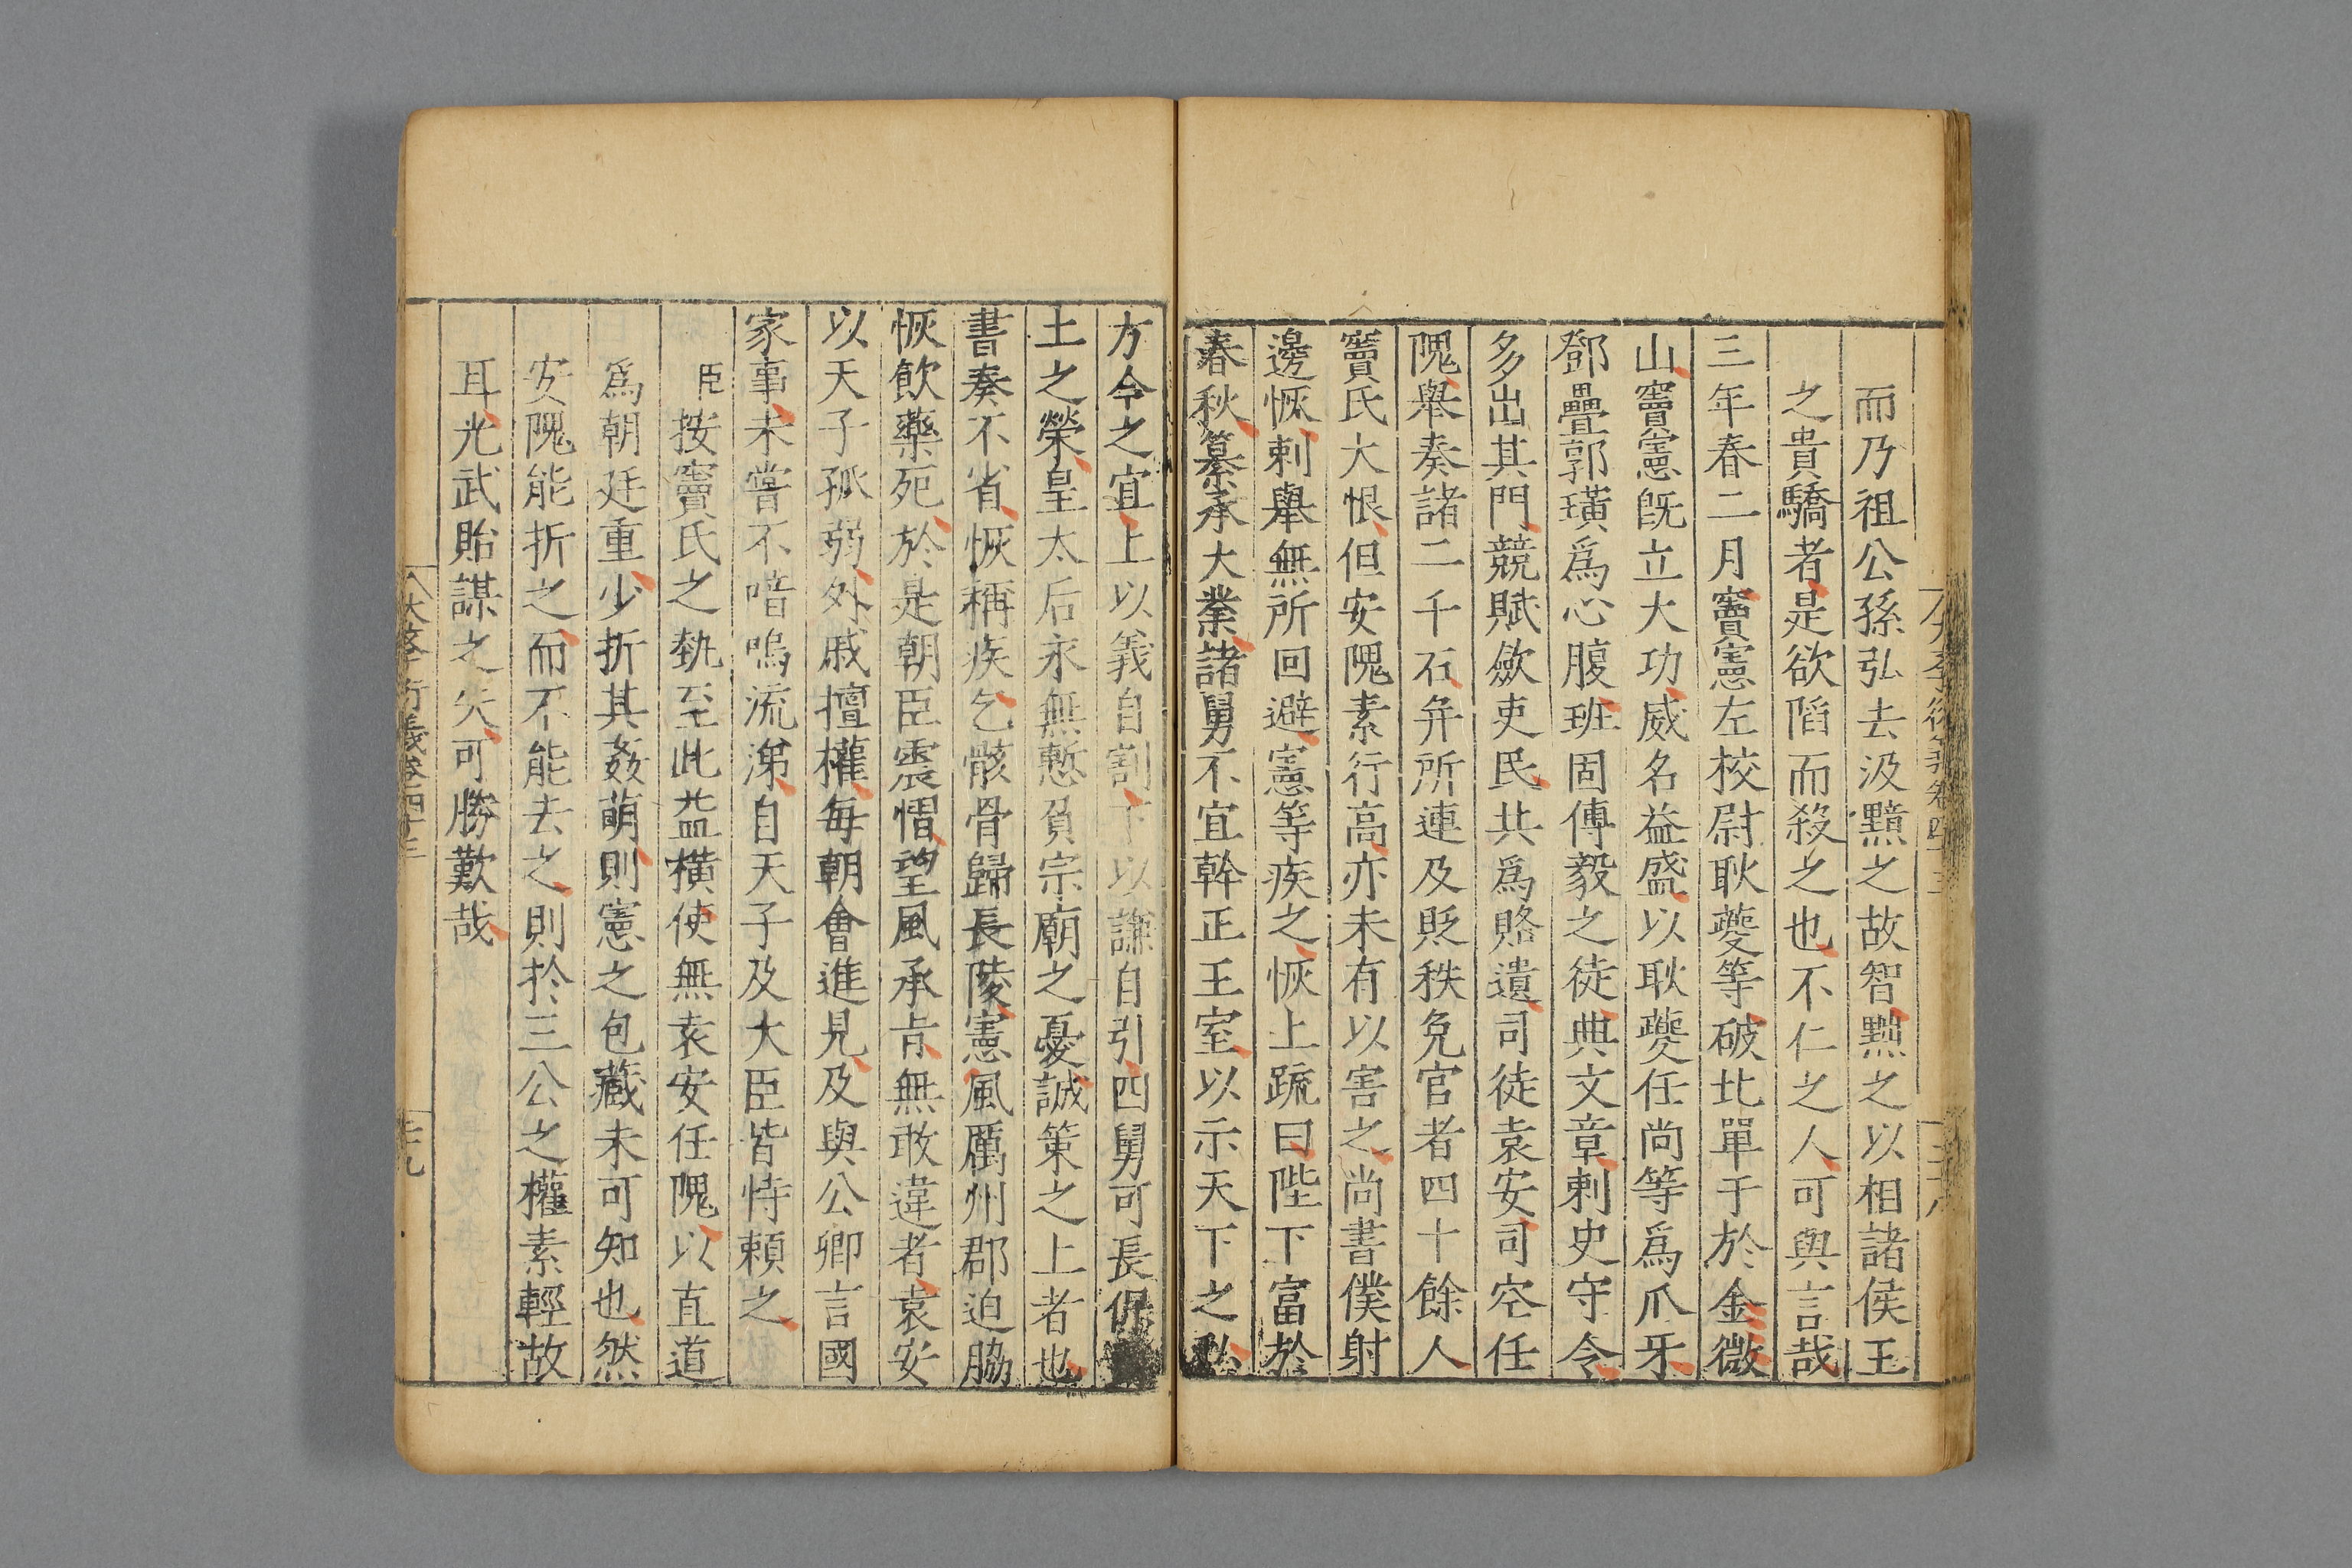 而乃祖公孫弘去汲黯之故智黜之以相諸侯王
之貴驕者是欲陷而殺之也不仁之人可與言哉
三年春二月竇憲左校尉耿夔等破北單于於金微
山竇憲旣立大功威名益盛以耿夔任尚等爲爪牙
鄧疊郭璜爲心腹班固傅毅之徒典文章刺史守令
多出其門競賦斂吏民共爲賂遺司徒袁安司空任
隗舉奏諸二千石幷所連及貶秩免官者四十餘人
竇氏大恨但安隗素行高亦未有以害之尚書僕射
邊恢刺舉無所回避憲等疾之恢上疏曰陛下富於
春秋纂承大業諸舅不宜幹正王室以示天下之私
方今之宜上以義自割下以謙自引四舅可長保
土之榮皇太后永無慙負宗廟之憂誠策之上者也
書奏不省恢稱疾乞骸骨歸長陵憲風厲州郡迫脇
恢飲藥死於是朝臣震慴望風承旨無敢違者袁安
以天子孤弱外戚擅權每朝會進見及與公卿言國
家事未嘗不喑嗚流涕自天子及大臣皆恃賴之
臣按竇氏之埶至此益橫使無袁安任隗以直道
爲朝廷重少折其姦萌則憲之包藏未可知也然
安隗能折之而不能去之則於三公之權素輕故
耳光武貽謀之失可勝歎哉
大學衍義卷四十三
二十九